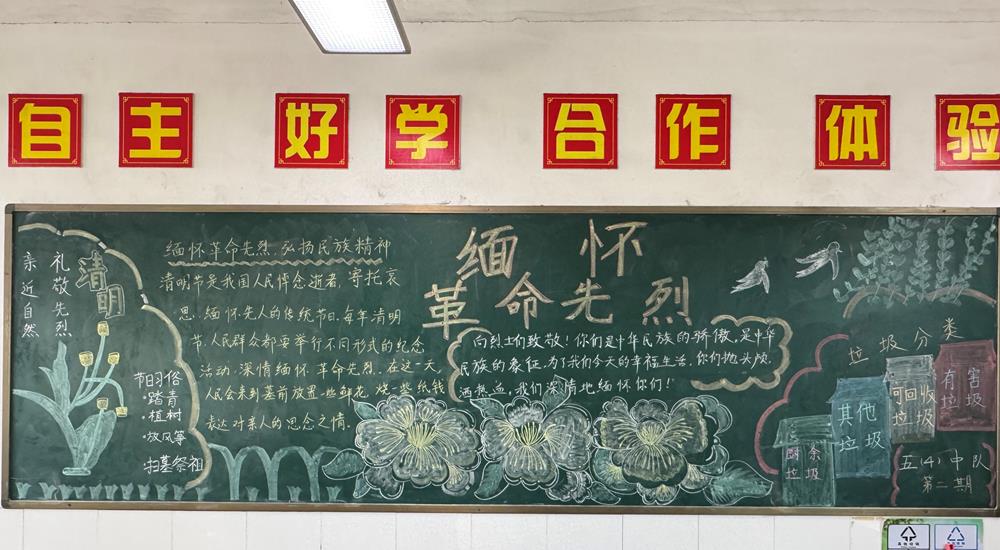 自主 好学 合作 体验
亲近自然
礼敬先烈
清明
节日习俗
·踏青
·植树
·放风筝
·扫墓祭祖
缅怀革命先烈 弘扬民族精神
清明节是我国人民悼念逝者,寄托哀
思、缅怀先人的传统节日.每年清明
节,人民群众都要举行不同形式的纪念
活动,深情缅怀革命先烈.在这一天,
人民会来到墓前放置一些鲜花,烧一些纸钱
表达对亲人的思念之情.
缅怀
革命先烈
向烈士们致敬!你们是中华民族的骄傲,是中华
民族的象征,为了我们今天的幸福生活,你们抛头颅,
洒热血,我们深情地缅怀你们!
垃圾分类
厨余垃圾
其他垃圾
可回收垃圾
有害垃圾
五(4)中队
第二期